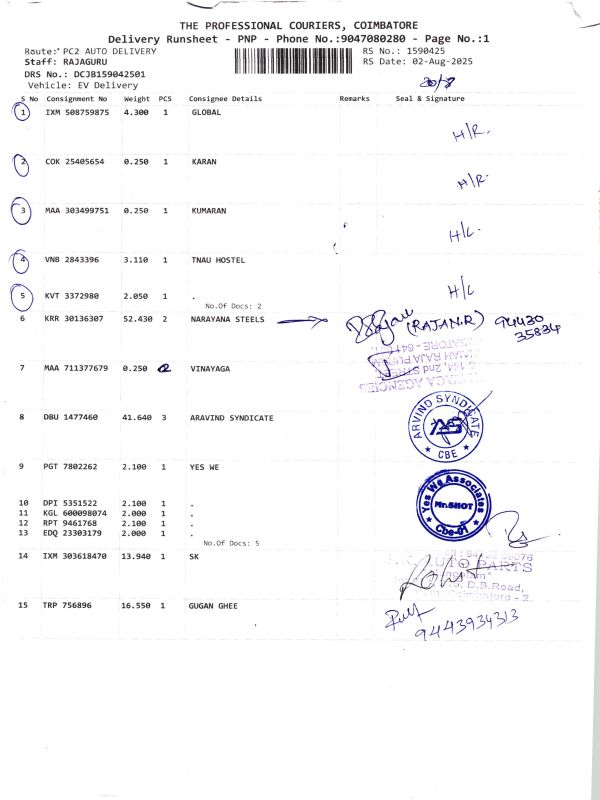 THE PROFESSIONAL COURIERS, COIMBATORE
Delivery Runsheet - PNP - Phone No.:9047080280 - Page No.:1
Route: PC2 AUTO DELIVERY RS No.: 1590425
Staff: RAJAGURU RS Date: 02-Aug-2025
DRS No.: DCJB159042501
Vehicle: EV Delivery
S No Consignment No Weight PCS Consignee Details Remarks Seal & Signature
1 IXM 508759875 4.300 1 GLOBAL
H/R.
2 COK 25405654 0.250 1 KARAN
H/R.
3 MAA 303499751 0.250 1 KUMARAN
H/L.
4 VNB 2843396 3.110 1 TNAU HOSTEL
5 KVT 3372980 2.050 1 . H/L
No.Of Docs: 2
6 KRR 30136307 52.430 2 NARAYANA STEELS (RAJAN.R) 94430
35834
7 MAA 711377679 0.250 VINAYAGA
8 DBU 1477460 41.640 3 ARAVIND SYNDICATE ARVIND SYNDICATE
CBE
9 PGT 7802262 2.100 1 YES WE
Yes We Associates
Mr.SHOT
Cbe-01
10 DPI 5351522 2.100 1 .
11 KGL 600098074 2.000 1 .
12 RPT 9461768 2.100 1 .
13 EDQ 23303179 2.000 1 .
No.Of Docs: 5
14 IXM 303618470 13.940 1 SK
AUTO PARTS
D.B.Road,
Coimbatore - 2.
15 TRP 756896 16.550 1 GUGAN GHEE
9443934313